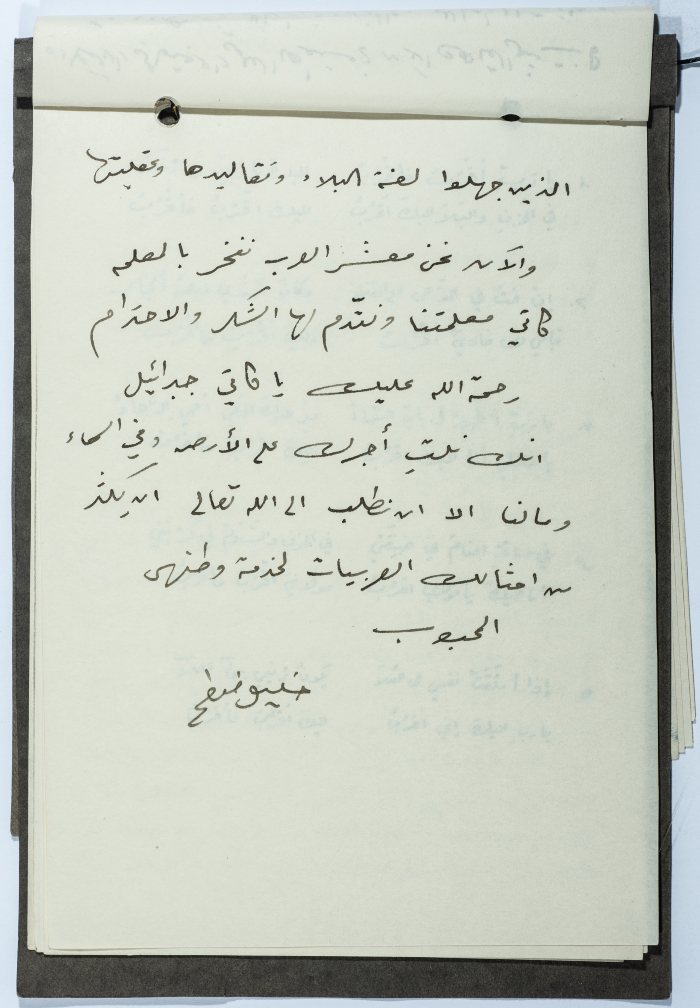 الذين جهلوا لغة البلاد وتقاليدها وعقليتها
والآن نحن معشر العرب نفخر بالمعلمه
كاتي معلمتنا ونقدّم لها الشكر والاحترام
رحمة الله عليك يا كاتي جبرائيل
انك نلتِ أجرك على الأرض وفي السماء
وما لنا الا ان نطلب الى الله تعالى ان يكثر
من امثالك العربيات لخدمة وطنهن
المحبوب
خليل